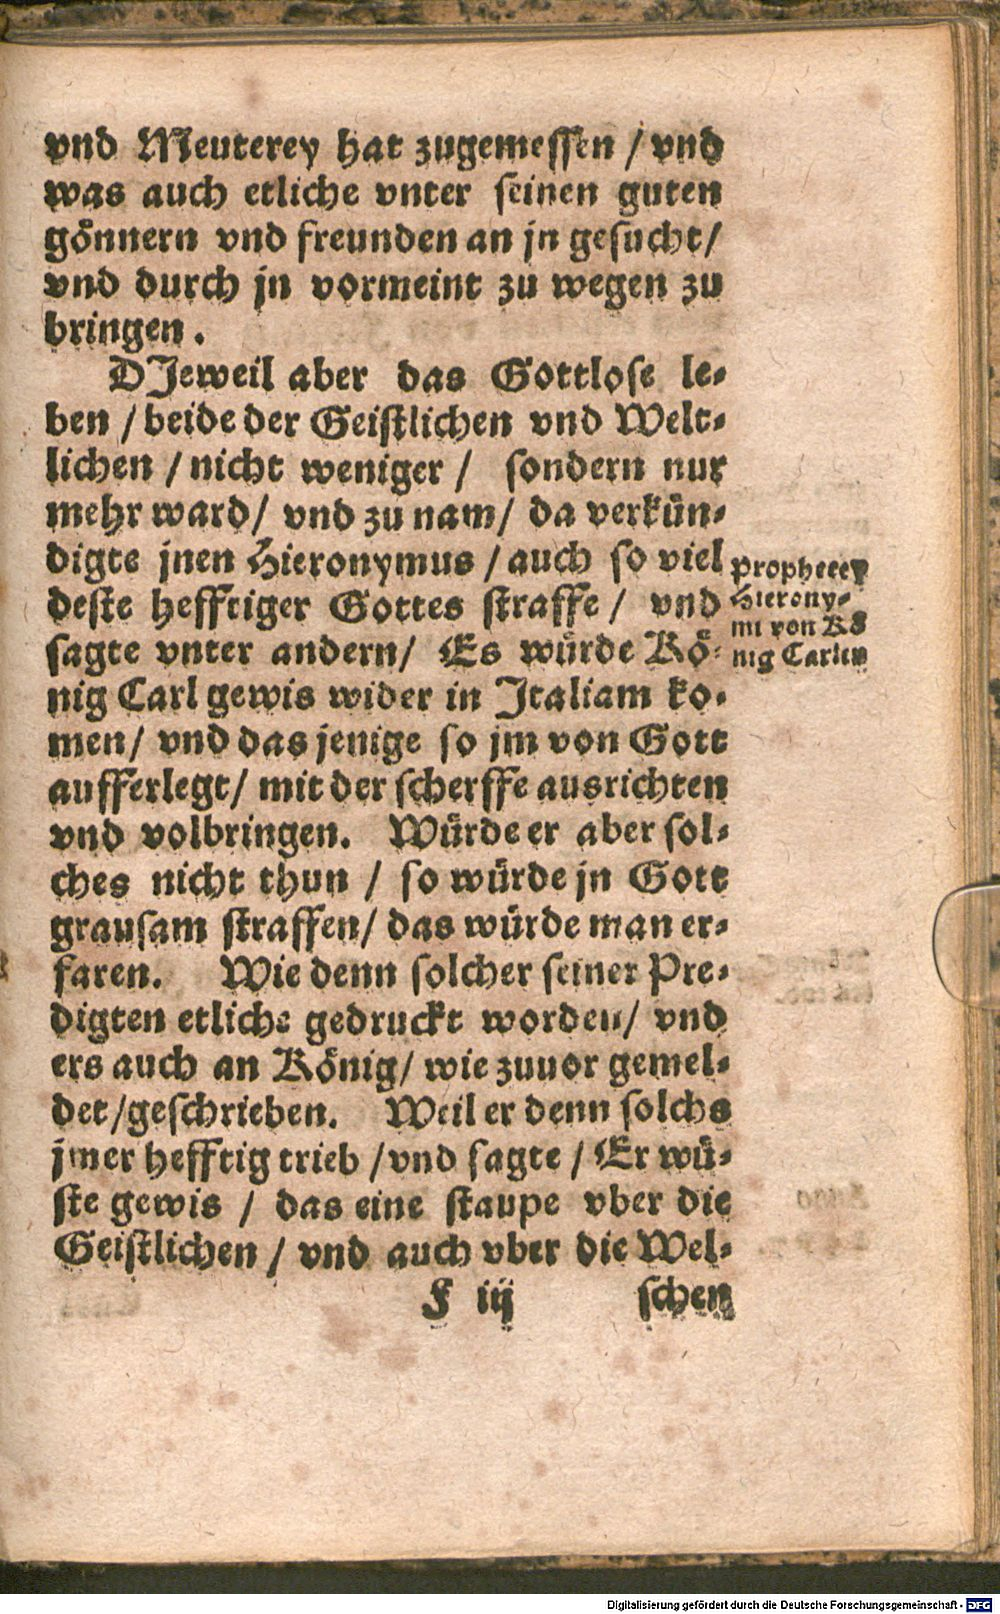 vnd Meuterey hat zugemessen / vnd
was auch etliche vnter seinen guten
gönnern vnd freunden an jn gesucht/
vnd durch jn vormeint zu wegen zu
bringen.
DJeweil aber das Gottlose le-
ben / beide der Geistlichen vnd Welt-
lichen / nicht weniger / sondern nur
mehr ward/ vnd zu nam/ da verkün-
digte jnen Hieronymus / auch so viel
deste hefftiger Gottes straffe / vnd
sagte vnter andern/ Es würde Kö-
nig Carl gewis wider in Jtaliam ko-
men/ vnd das jenige so jm von Gott
aufferlegt/ mit der scherffe ausrichten
vnd volbringen. Würde er aber sol-
ches nicht thun / so würde jn Gott
grausam straffen/ das würde man er-
faren. Wie denn solcher seiner Pre-
digten etliche gedruckt worden/ vnd
ers auch an König/ wie zuuor gemel-
det /geschrieben. Weil er denn solchs
jmer hefftig trieb /vnd sagte / Er wü-
ste gewis / das eine staupe vber die
Geistlichen / vnd auch vber die Wel-
F iij schen
Prophecey
Hierony-
mi von Kö
nig Carln
Digitalisierung gefördert durch die Deutsche Forschungsgemeinschaft - DFG